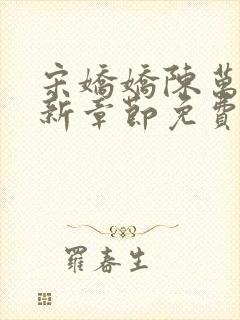 宋嬌嬌陳萬
新章節免費
羅春生